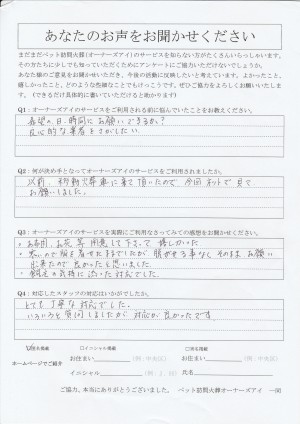 あなたのお声をお聞かせください
まだまだペット訪問火葬(オーナーズアイ)のサービスを知らない方がたくさんいらっしゃいます。
その方たちに少しでも知っていただくためにアンケートにご協力いただけないでしょうか。
あなた様のご意見をお聞かせいただき、今後の活動に反映したいと考えています。よかったこと、
嬉しかったこと、どのような些細なことでもけっこうです。ぜひご協力をよろしくお願いいたしま
す。(できるだけ具体的に書いていただけると助かります)
Q1：オーナーズアイのサービスをご利用される前に悩んでいたことをお教えください。
希望の日、時間にお願いできるか?
良心的な業者をさがしたい。
Q2：何が決め手となってオーナーズアイのサービスをご利用されましたか。
以前、移動火葬車に来て頂いたので今回ネットで見て
お願いしました。
Q3：オーナーズアイのサービスを実際にご利用なさってみての感想をお聞かせください。
・お布団、お花等用意して下さって嬉しかった
・寒いので服を着せたままでしたが脱がせる事なくそのままお願い
出来たので良かったと思いました。
・飼主の気持に添った対応でした。
Q4：対応したスタッフの対応はいかがでしたか。
とても丁寧な対応でした。
いろいろと質問しましたが対応が良かったです。
匿名掲載 □イニシャル掲載 □実名掲載
お住まい (例：中央区) お住まい (例：中央区)
ホームページでご紹介
イニシャル (例：S．H) 氏名
ご協力、本当にありがとうございました。 ペット訪問火葬オーナーズアイ